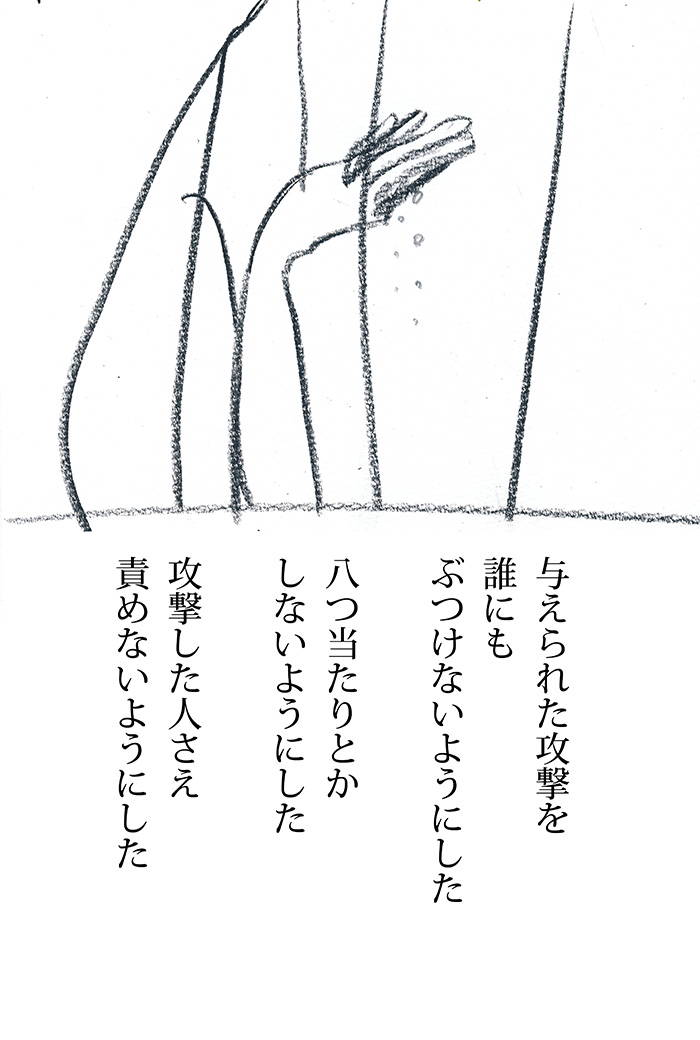 与えられた攻撃を
誰にも
ぶつけないようにした
八つ当たりとか
しないようにした
攻撃した人さえ
責めないようにした